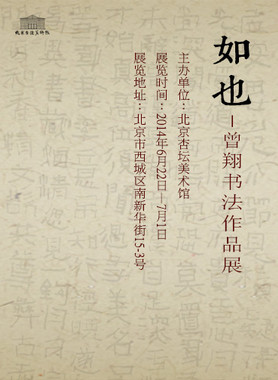 如也
—曾翔书法作品展
主办单位：北京杏坛美术馆
展览时间：2014年6月22日—7月1日
展览地址：北京市西城区南新华街15-3号